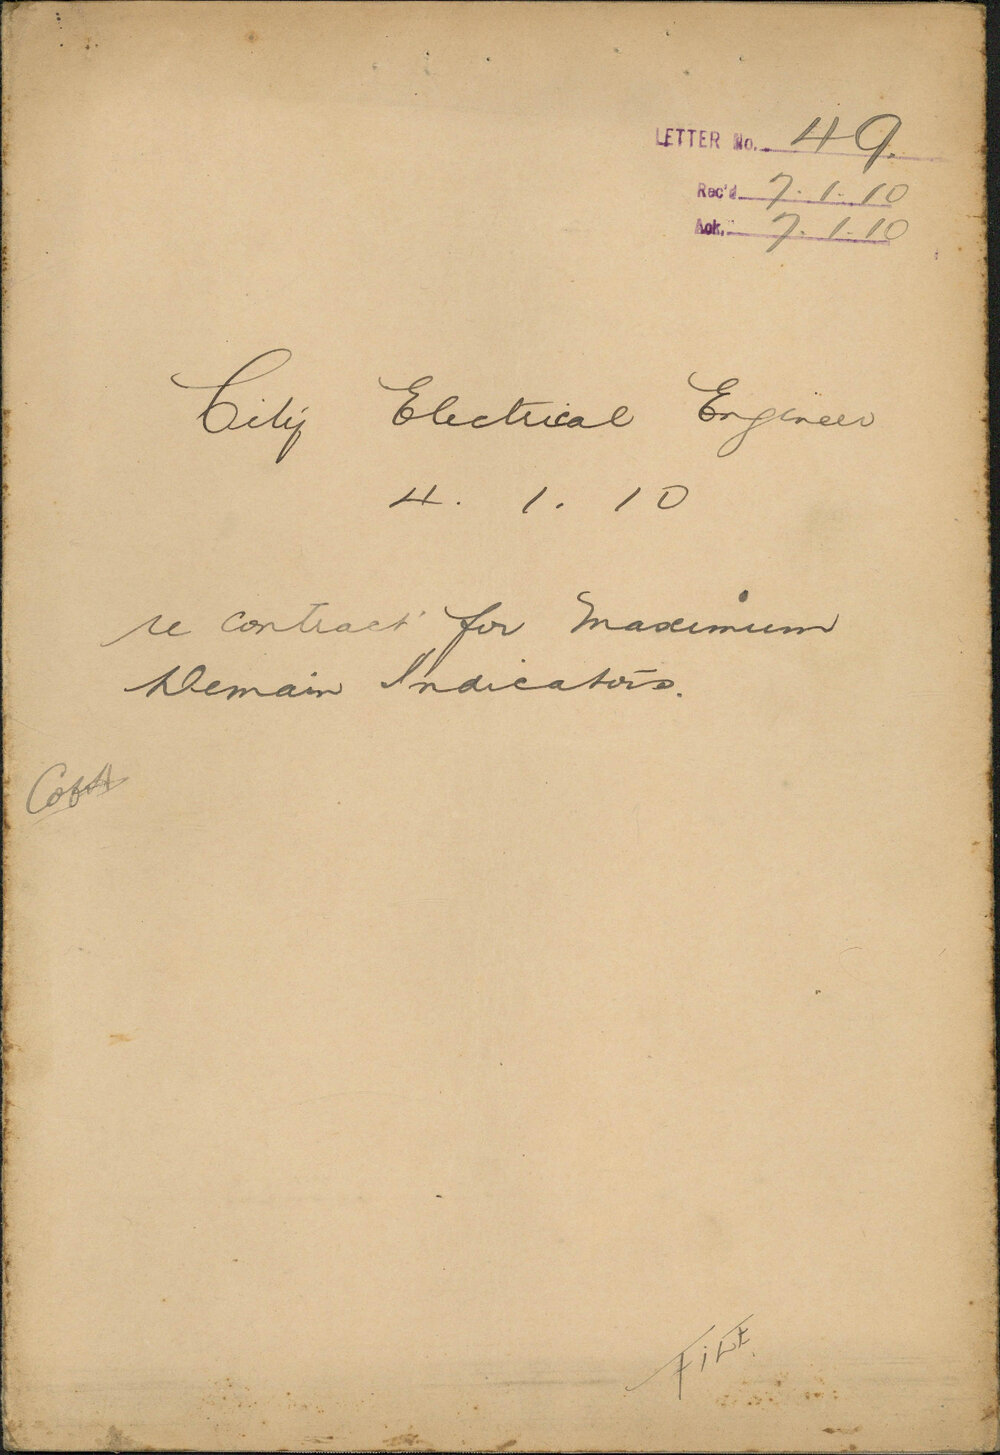 LETTER No. 49.
Rec'd. 7.1.10
Ack. 7.1.10
City Electrical Engineer
4.1.10
re contract for Maximum
Demain Indicators.
FiLE